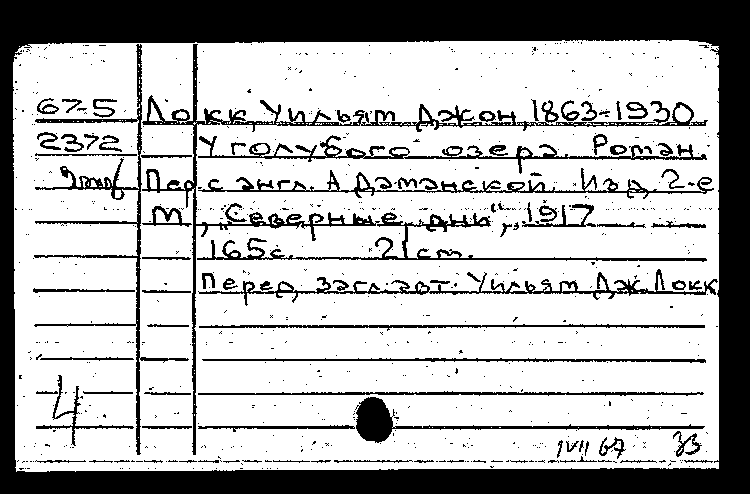 67-5 Локк, Уильям Джон, 1863-1930
2372 У голубого озера. Роман.
Пер. с англ. А. Даманской. Изд. 2-е
М., „Северные дни", 1917
165 с. 21 см.
Перед загл. авт.: Уильям Дж. Локк
4
1 VII 67 33